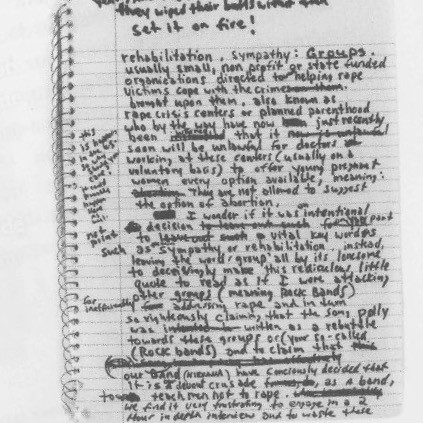 they wiped their butts with and
set it on fire!
rehabilitation, sympathy: Groups.
usually small, non profit or state funded
organizations directed to helping rape
victims cope with the crimes
brought upon them. also known as
rape crisis centers or planned parenthood
who by the way have now just recently
been that it
soon will be unlawful for doctors
working at these centers (usually on a
voluntary basis) to offer young pregnant
women every option available, meaning:
They are not allowed to suggest
the option of abortion.
I wonder if it was an intentional
decision to part
to vital key words
such as sympathy or rehabilitation, instead,
leaving the word 'group' all by its lonesome
to deceivingly make this rediculous, little
quote to read as if I were attacking
other groups (meaning ROCK BANDS)
for addressing rape and in turn
so righteously claiming that the song, polly
was written as a rebuttle
towards these groups or (your so-called
(Rock bands) and to claim that
our band (NIRVANA) have conciously decided that
it is a devout crusade, as a band,
to teach men not to rape.
we find it very frustrating to engage in a 2
Hour in depth interview and to waste these
this
is happening
in why
not
print
for